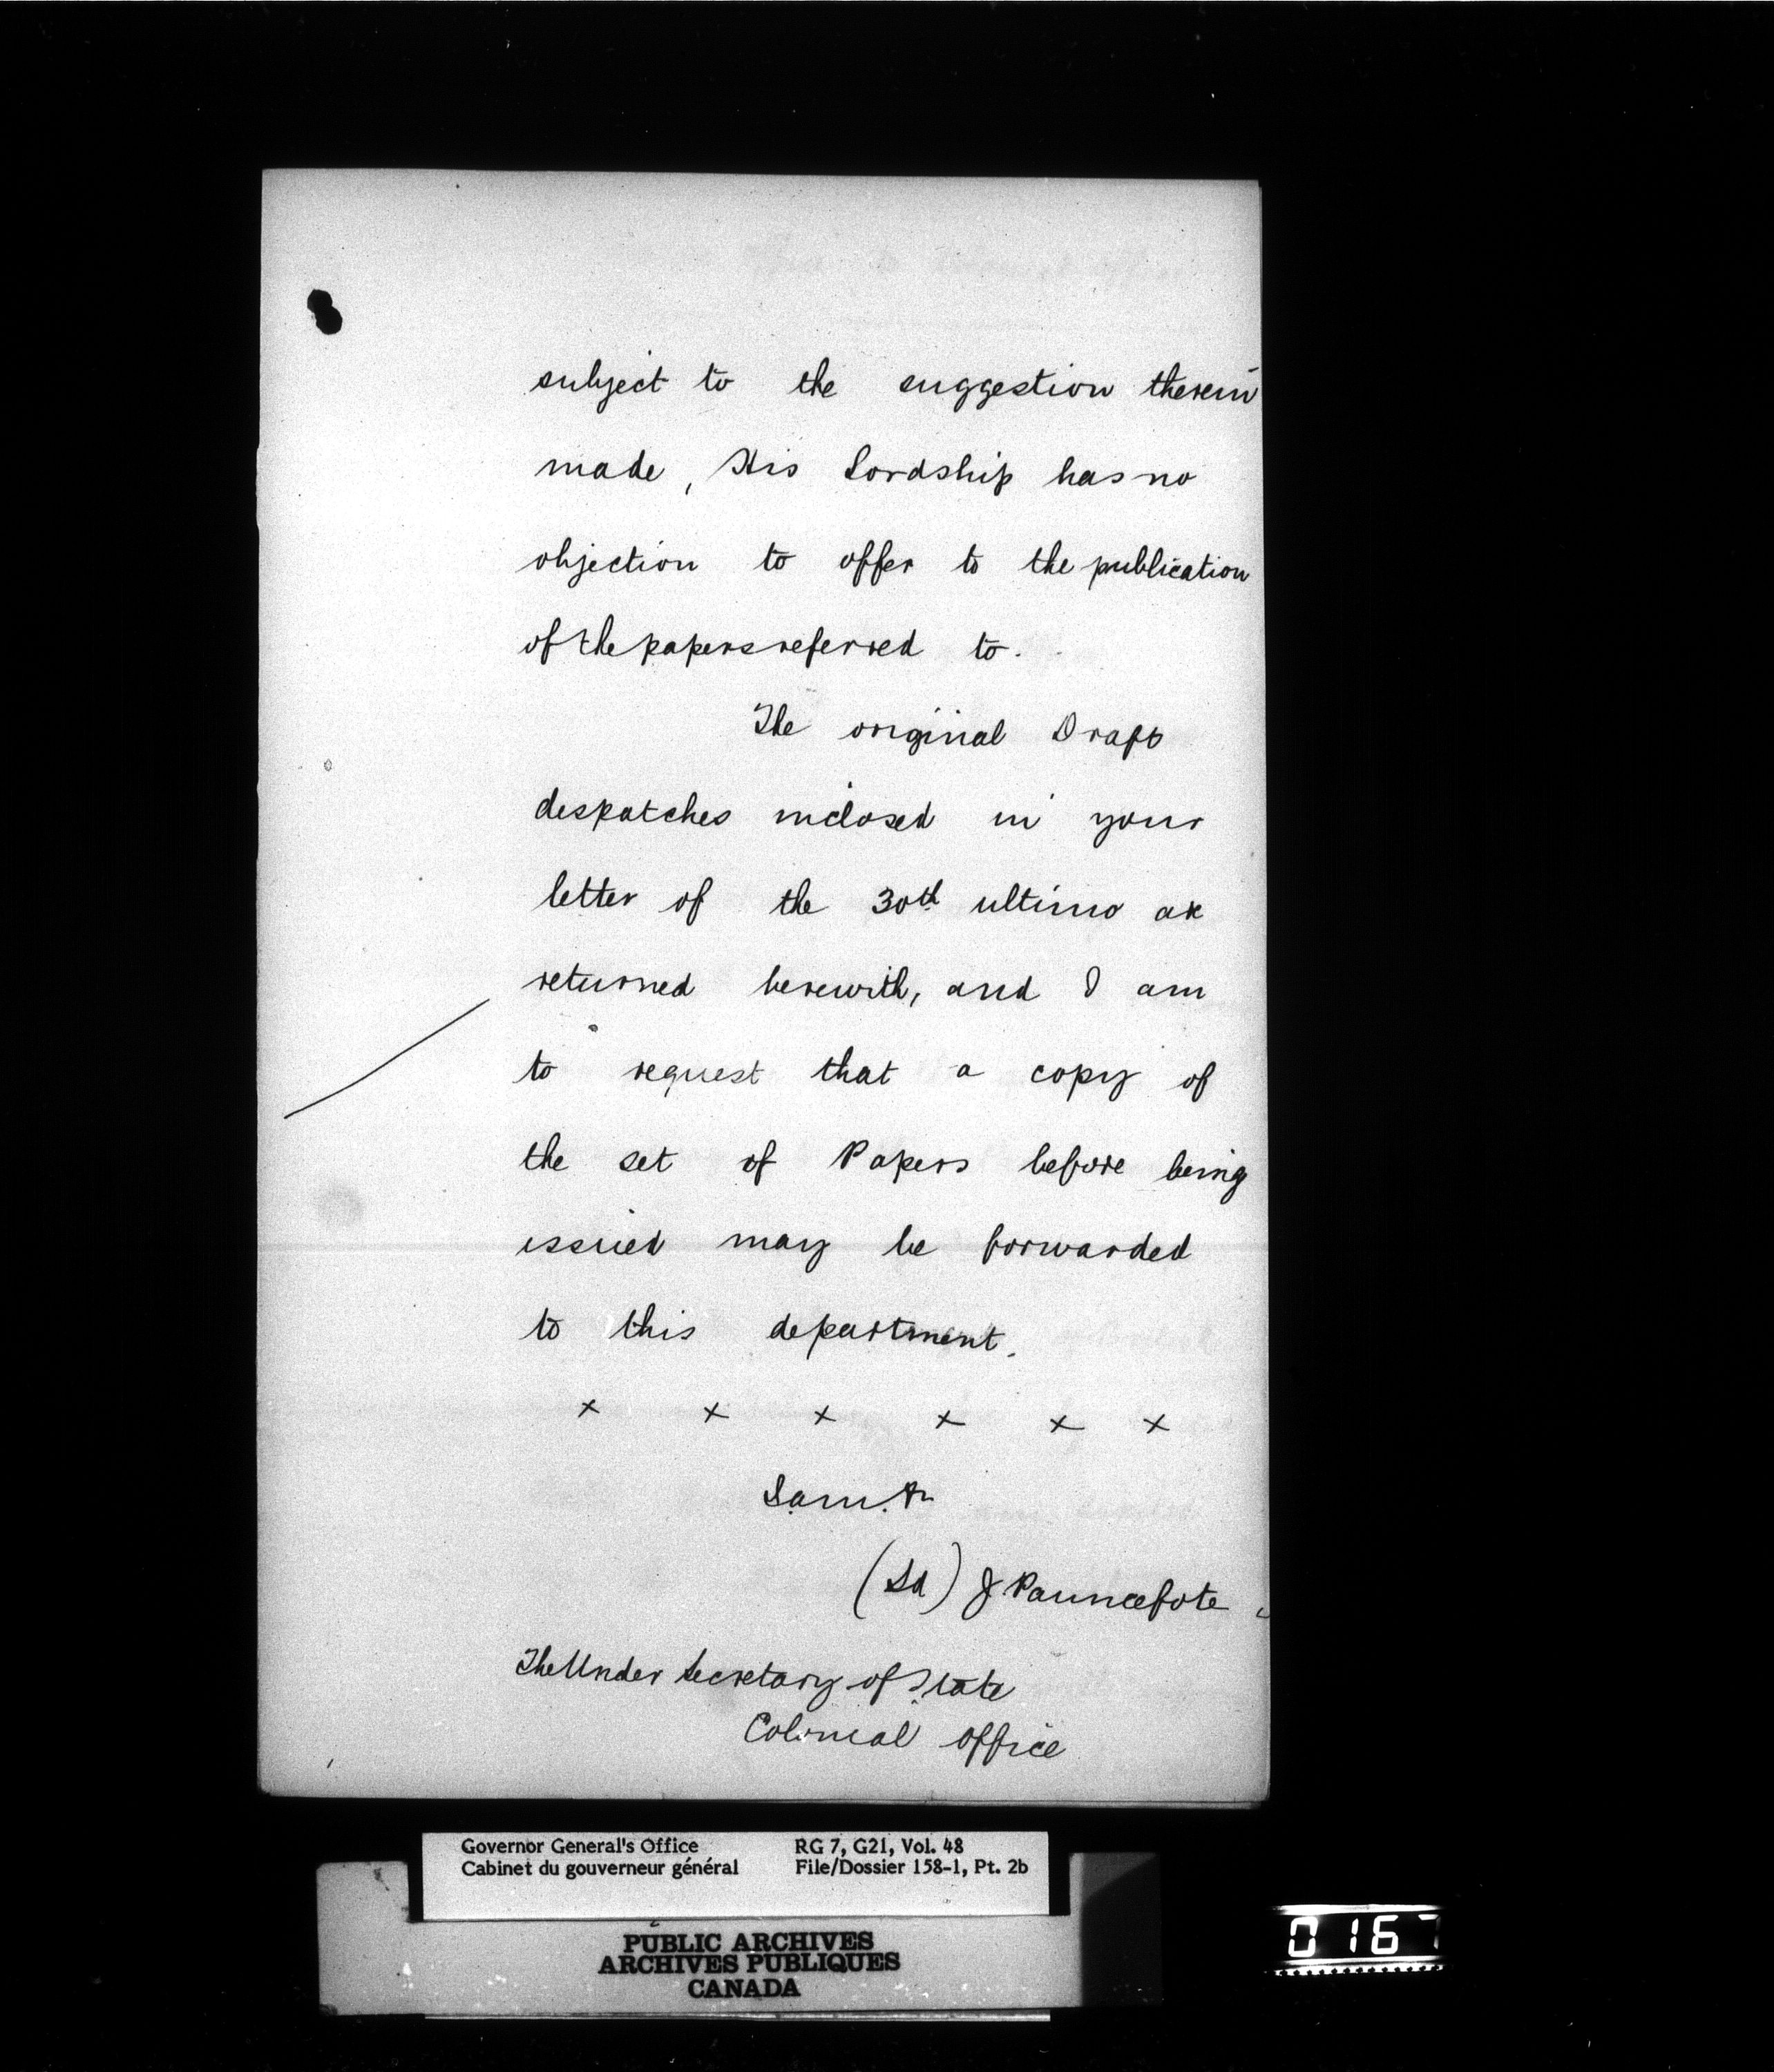 subject to the suggestion therein
made, His Lordship has no
objection to offer to the publication
of the papers referred to.
The original Draft
despatches inclosed in your
letter of the 30th ultimo are
returned herewith, and I am
to request that a copy of
the set of Papers before being
issued may be forwarded
to this department.
x x x x x x
I am. &c
(Sd) J Pauncefote
The Under Secretary of State
Colonial Office
Governor General's Office RG 7, G21, Vol. 48
Cabinet du gouverneur général File/Dossier 158-1, Pt. 2b
PUBLIC ARCHIVES
ARCHIVES PUBLIQUES
CANADA
0167